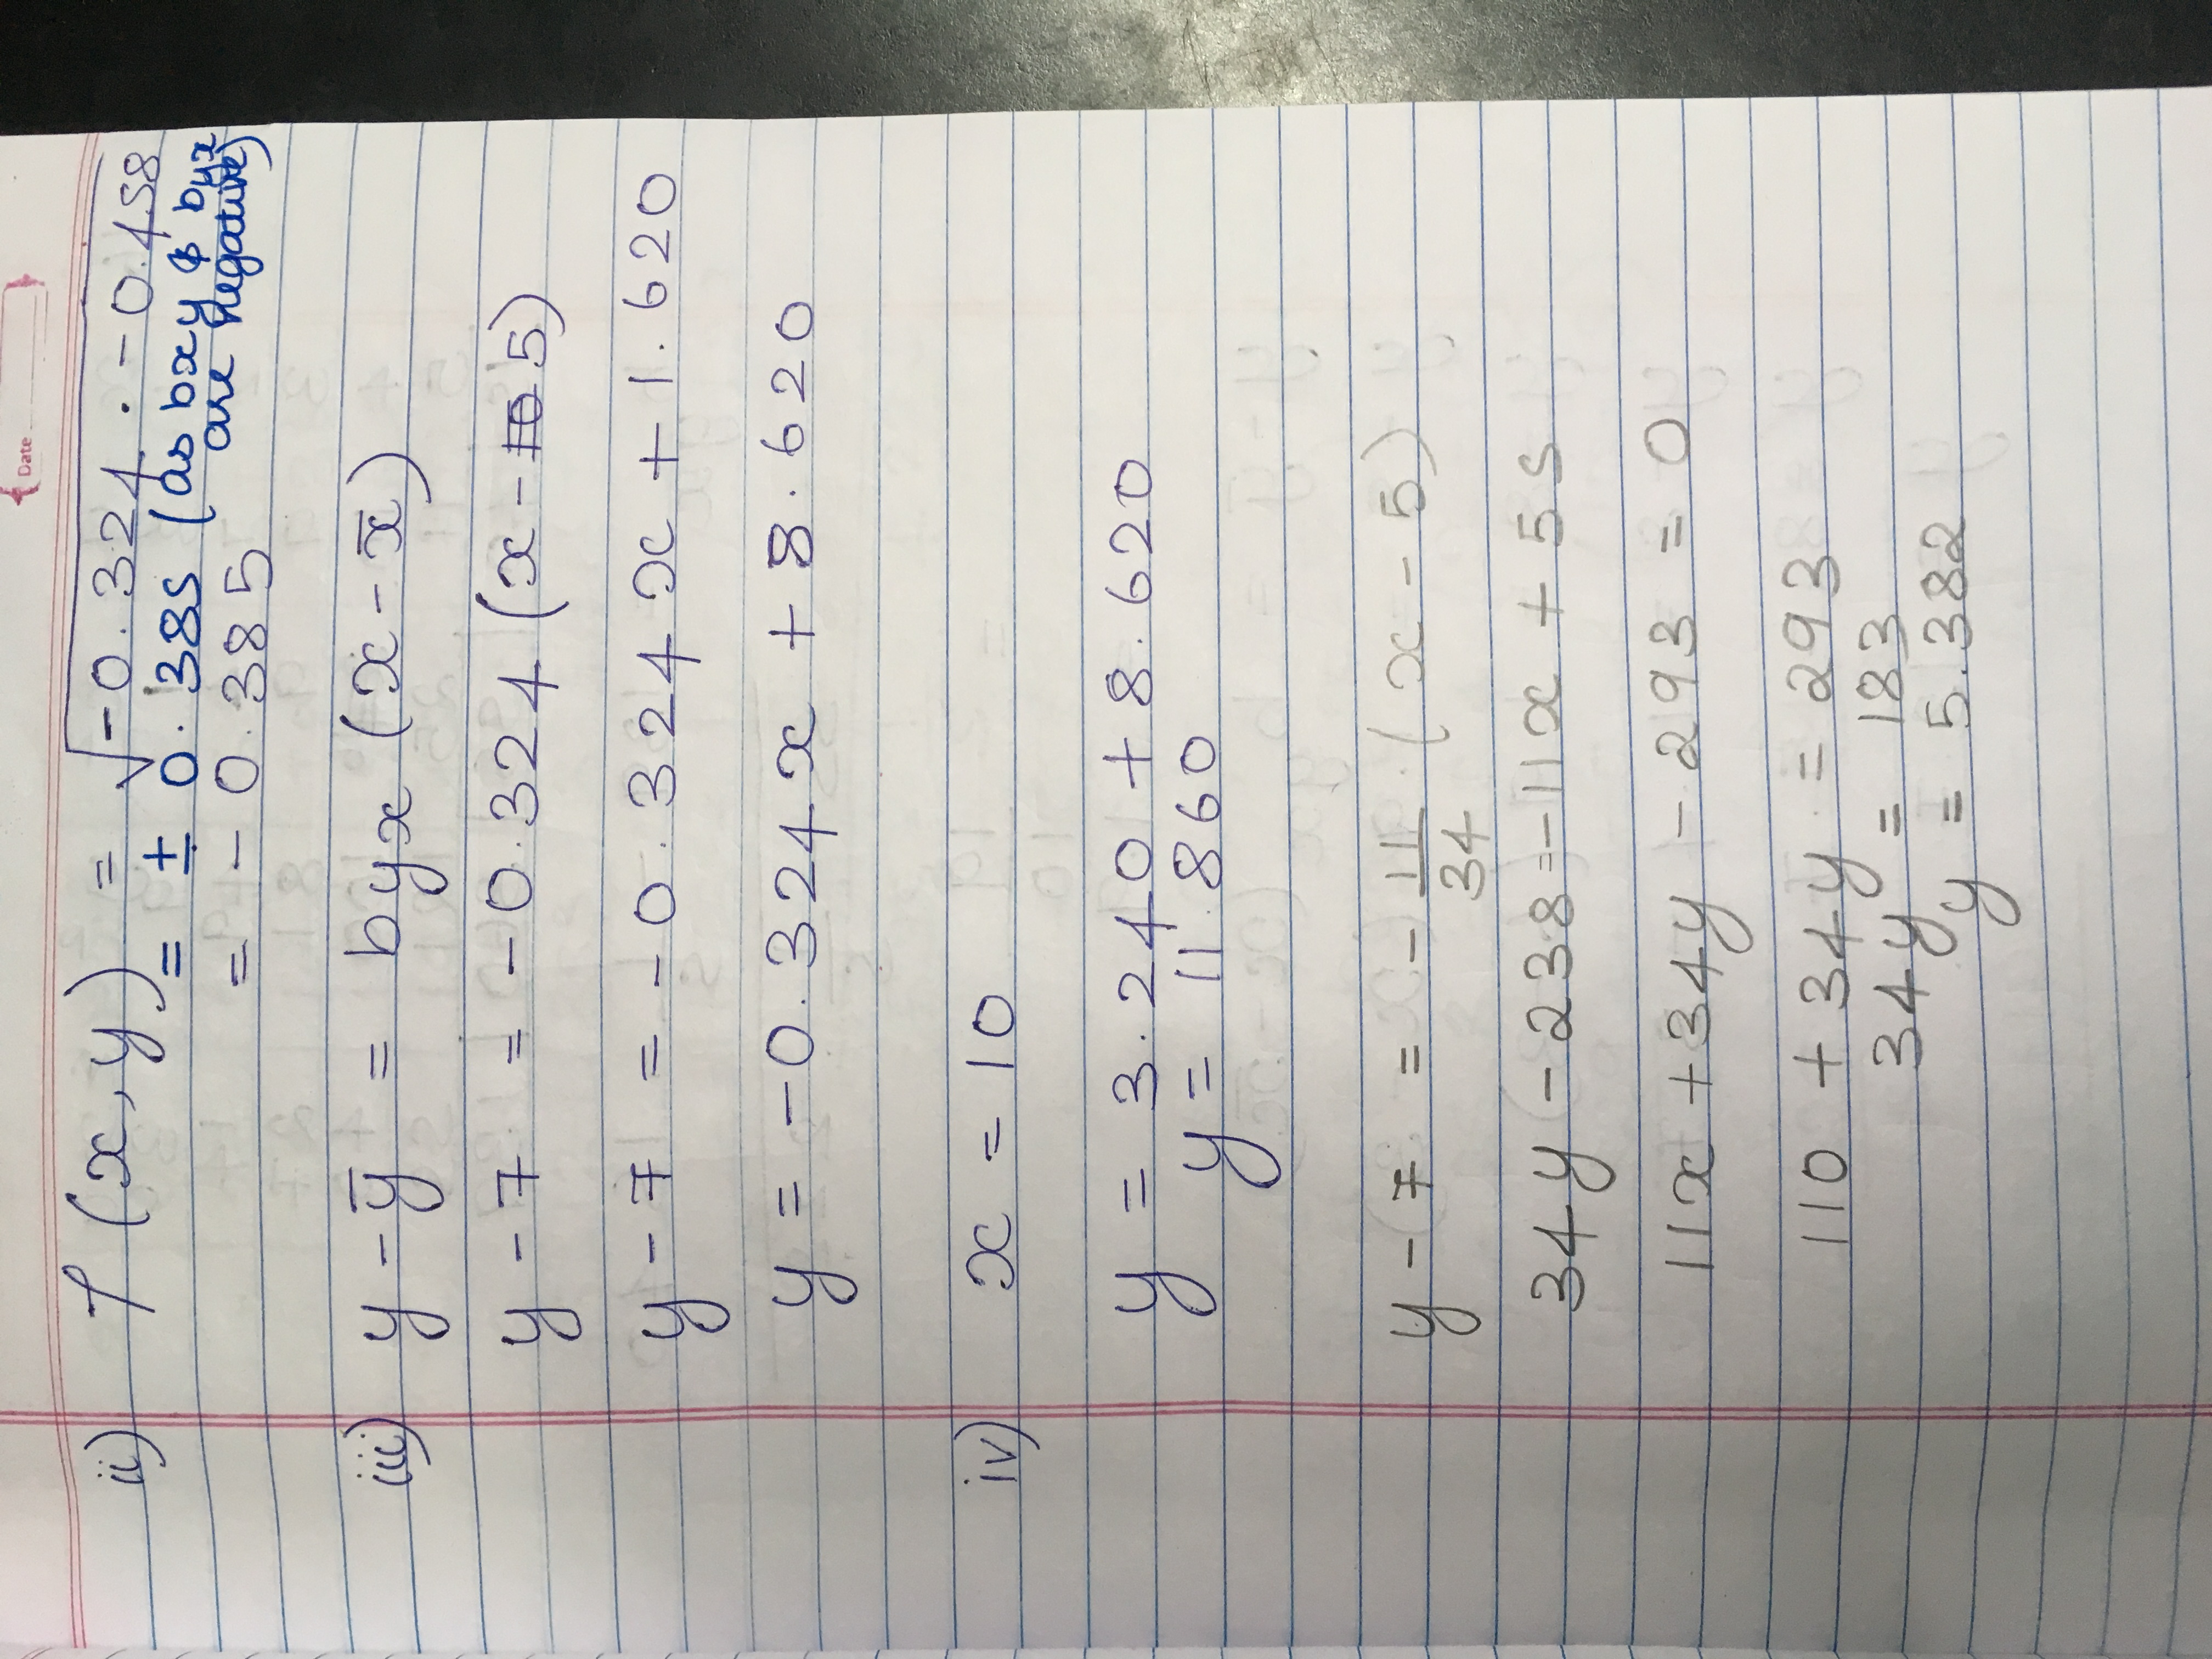 Date
ii) r (x, y) = √-0.324 · -0.458
= ± 0.385 (as bxy & byx are negative)
= - 0.385
iii) y - ȳ = byx (x - x̄)
y - 7 = -0.324 (x - 5)
y - 7 = -0.324x + 1.620
y = -0.324x + 8.620
iv) x = 10
y = 3.240 + 8.620
y = 11.860
y - 7 = - 11/34 (x - 5)
34y - 238 = -11x + 55
11x + 34y - 293 = 0
110 + 34y = 293
34y = 183
y = 5.382